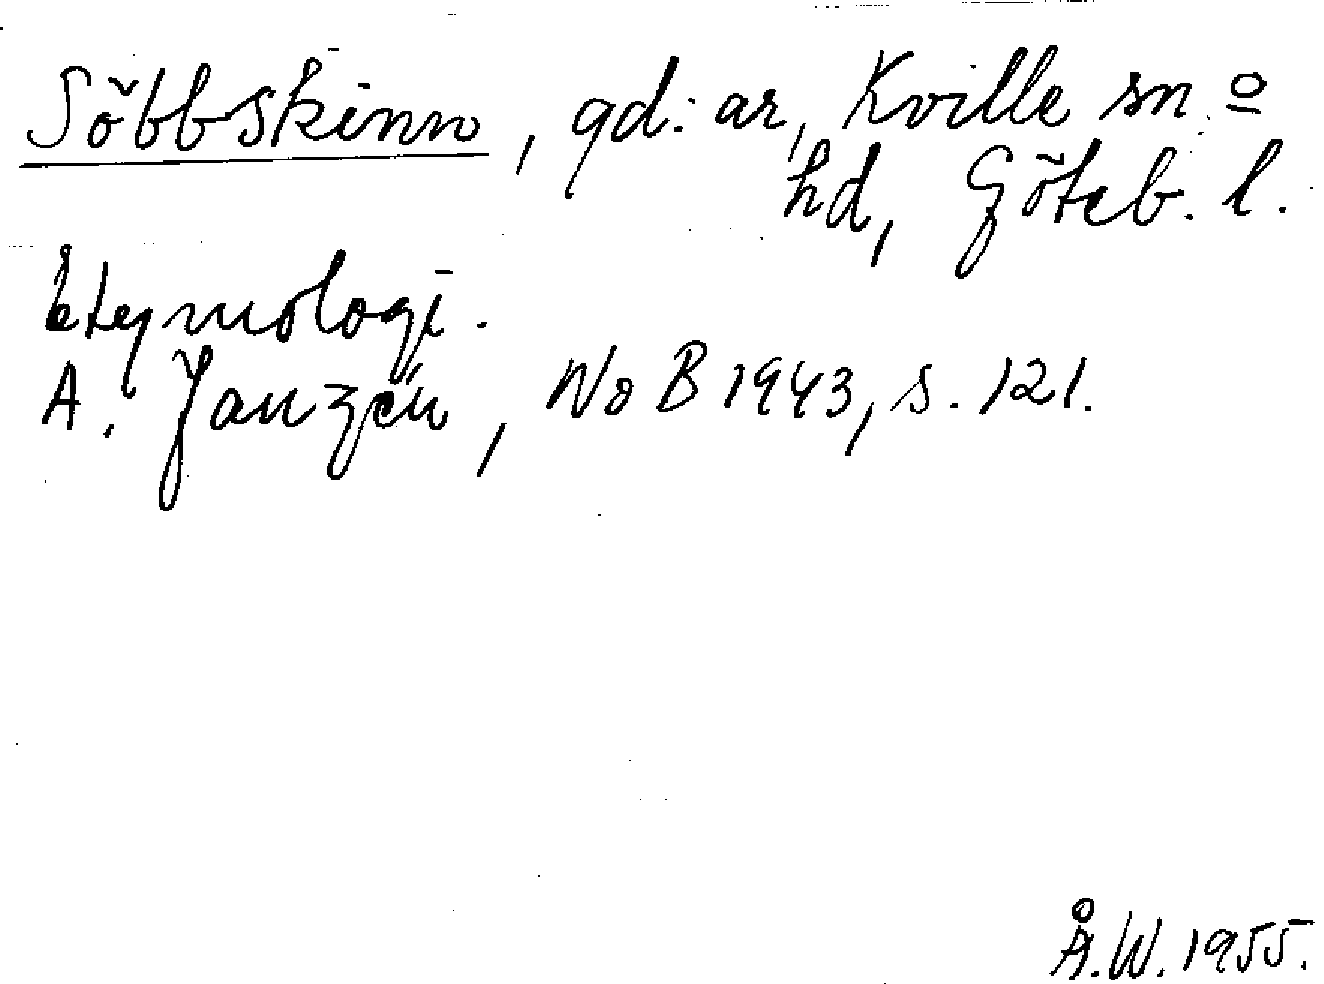 Söbbskinn, gd:ar, Kville sn o
hd, Göteb. l.
Etymologi.
A. Janzén, NoB 1943, s. 121.
Å.W. 1955.